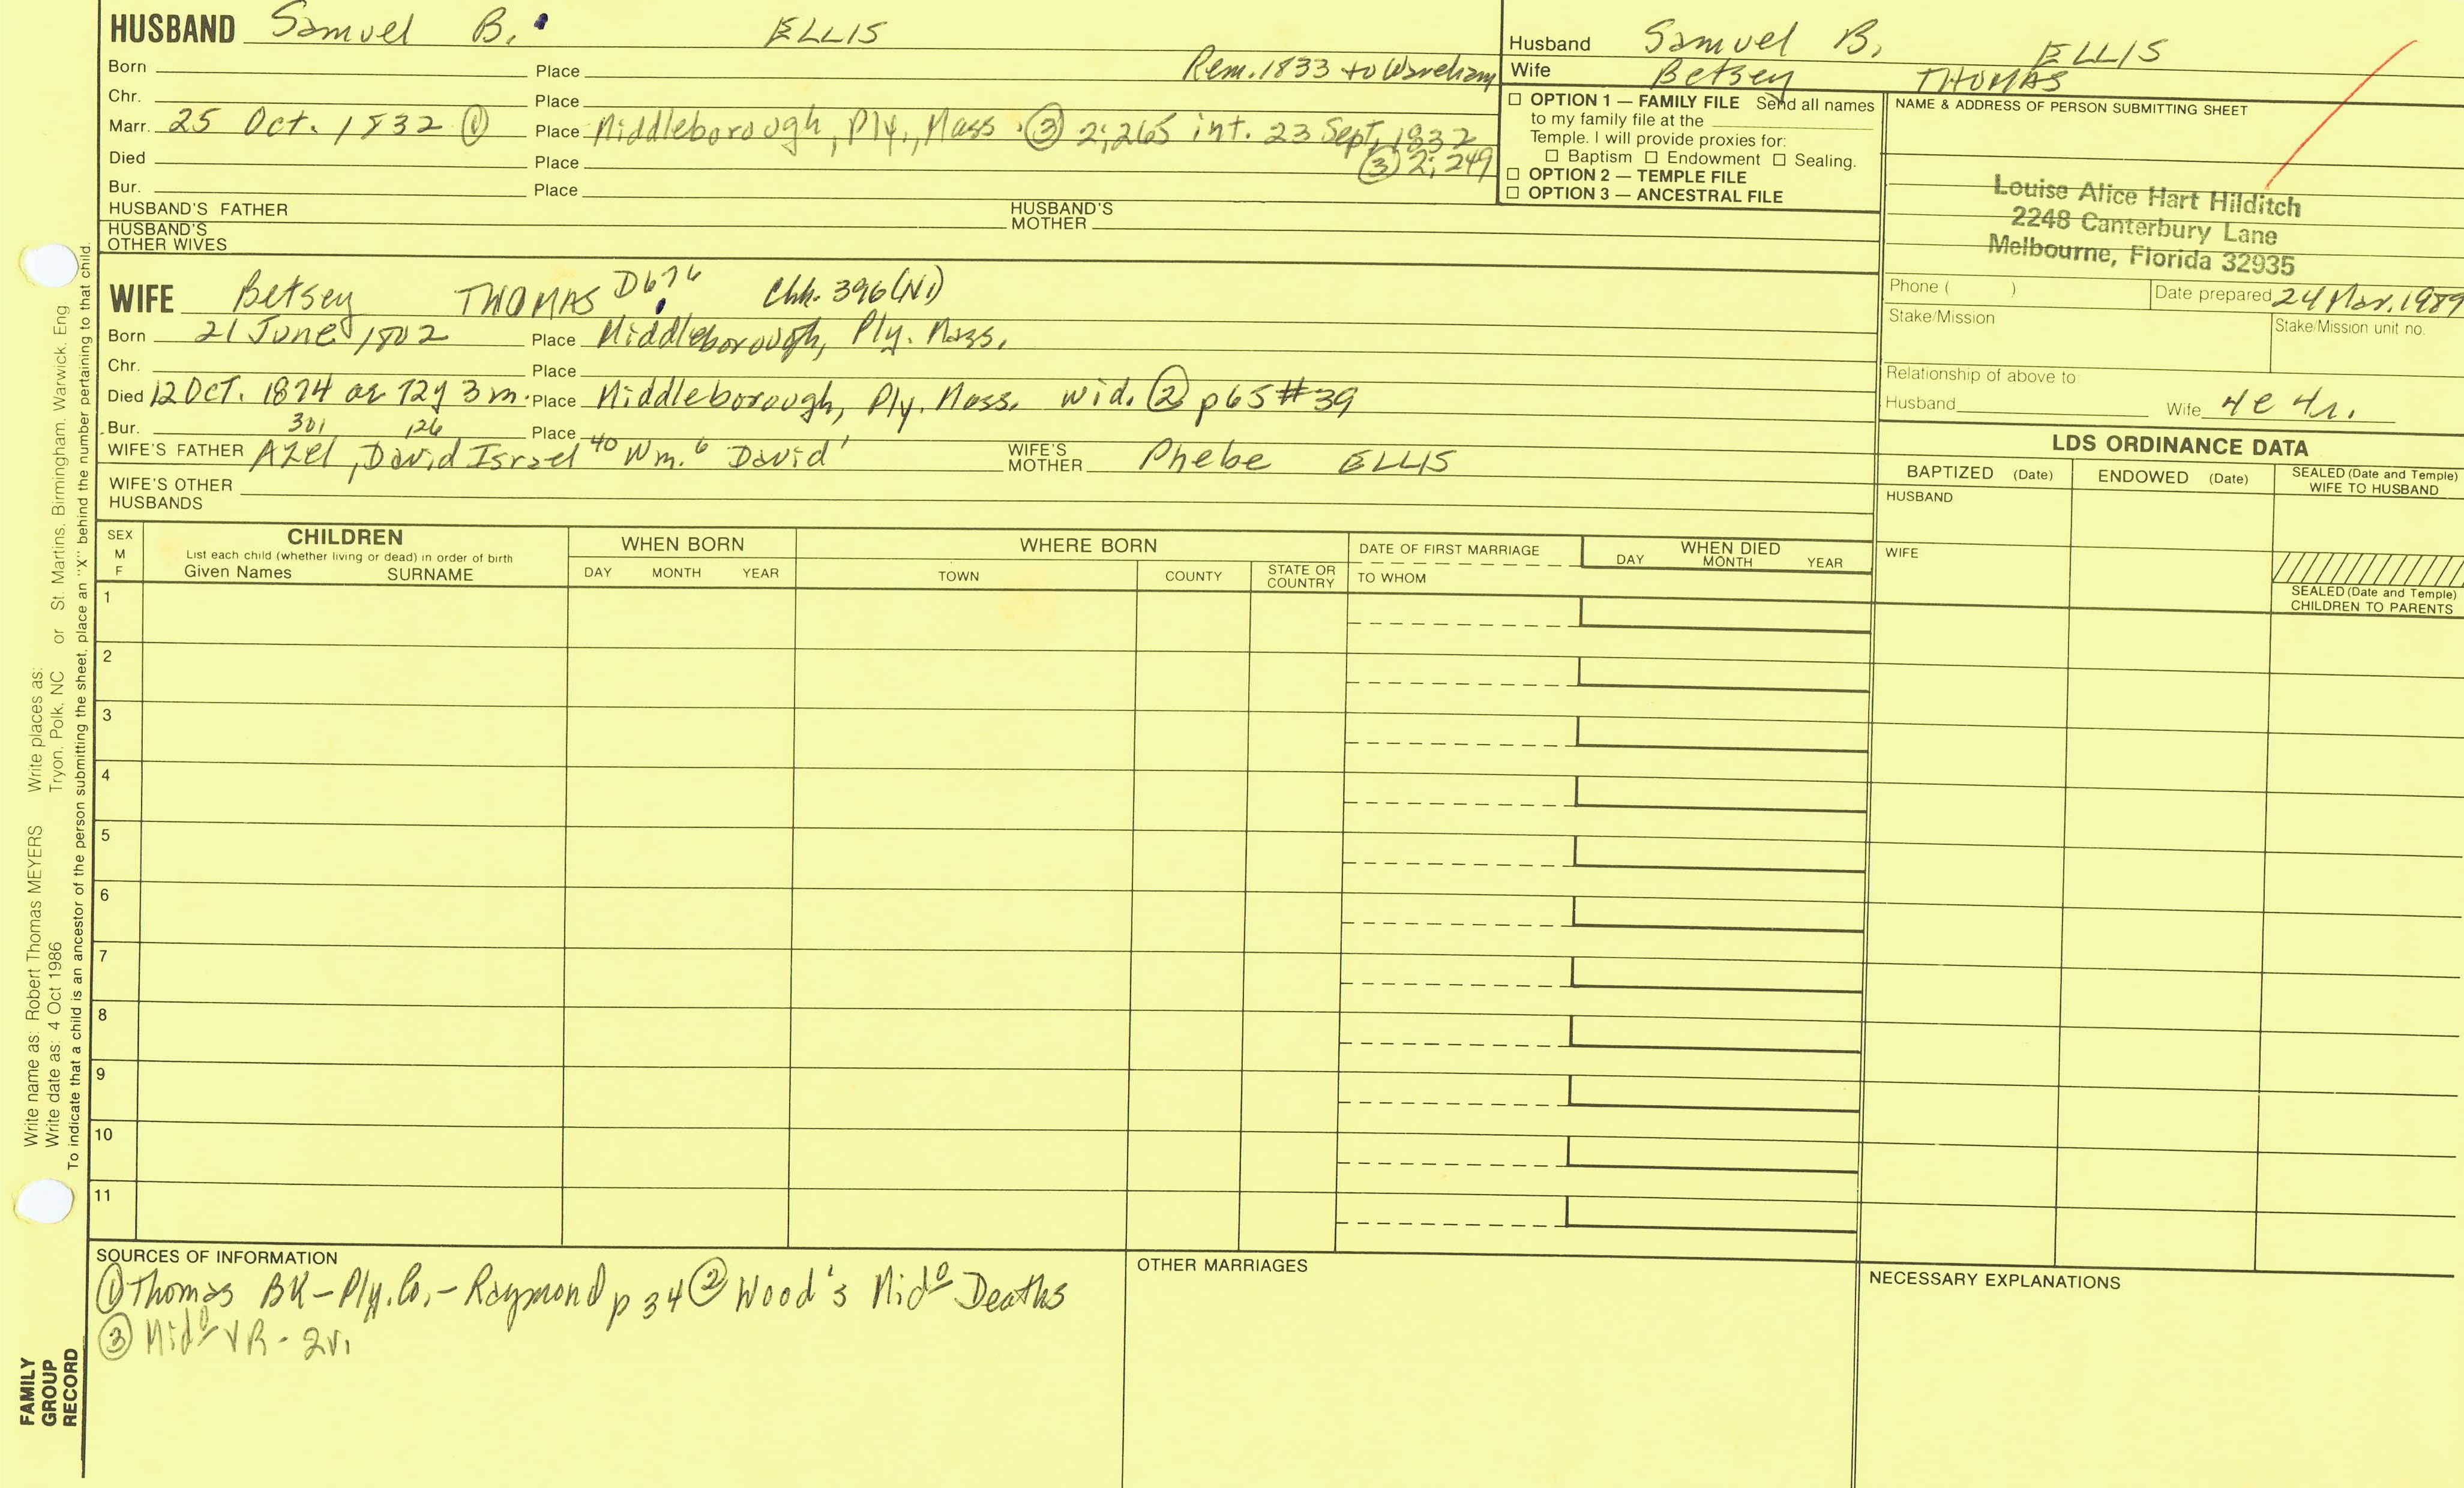 HUSBAND Samuel B. ELLIS
Born Place Rem. 1833 to Wareham
Chr. Place
Marr. 25 Oct. 1832 ① Place Middleborough, Ply., Mass. ③ 2;265 int. 23 Sept, 1832
Died Place ③ 2; 249
Bur. Place
HUSBAND'S FATHER HUSBAND'S MOTHER
HUSBAND'S OTHER WIVES
Husband Samuel B. ELLIS
Wife Betsey THOMAS
☐ OPTION 1 — FAMILY FILE Send all names
to my family file at the
Temple. I will provide proxies for:
☐ Baptism ☐ Endowment ☐ Sealing.
☐ OPTION 2 — TEMPLE FILE
☐ OPTION 3 — ANCESTRAL FILE
NAME & ADDRESS OF PERSON SUBMITTING SHEET
Louise Alice Hart Hilditch
2248 Canterbury Lane
Melbourne, Florida 32935
Phone ( )
Date prepared 24 Mar. 1989
Stake/Mission
Stake/Mission unit no.
Relationship of above to
Husband Wife 4c 4r.
WIFE Betsey THOMAS D676 Chh. 396(N1)
Born 21 June 1802 Place Middleborough, Ply. Mass.
Chr. Place
Died 12 OCT. 1874 ae 72y 3m. Place Middleborough, Ply. Mass. wid. ② p65 #39
Bur. Place
301 126
WIFE'S FATHER Azel, David Israel 40 Wm. 6 David 1 WIFE'S MOTHER Phebe ELLIS
WIFE'S OTHER HUSBANDS
LDS ORDINANCE DATA
BAPTIZED (Date) ENDOWED (Date) SEALED (Date and Temple) WIFE TO HUSBAND
HUSBAND
WIFE
SEALED (Date and Temple) CHILDREN TO PARENTS
SEX M F
CHILDREN
List each child (whether living or dead) in order of birth
Given Names SURNAME
WHEN BORN
DAY MONTH YEAR
WHERE BORN
TOWN COUNTY STATE OR COUNTRY
DATE OF FIRST MARRIAGE
TO WHOM
WHEN DIED
DAY MONTH YEAR
1
2
3
4
5
6
7
8
9
10
11
SOURCES OF INFORMATION
① Thomas BK - Ply. Co. - Raymond p 34 ② Wood's Mido Deaths
③ Mido VR - 2v.
OTHER MARRIAGES
NECESSARY EXPLANATIONS
Write name as: Robert Thomas MEYERS Write places as:
Write date as: 4 Oct 1986 Tryon, Polk, NC or St. Martins, Birmingham, Warwick, Eng
To indicate that a child is an ancestor of the person submitting the sheet, place an "X" behind the number pertaining to that child.
FAMILY
GROUP
RECORD